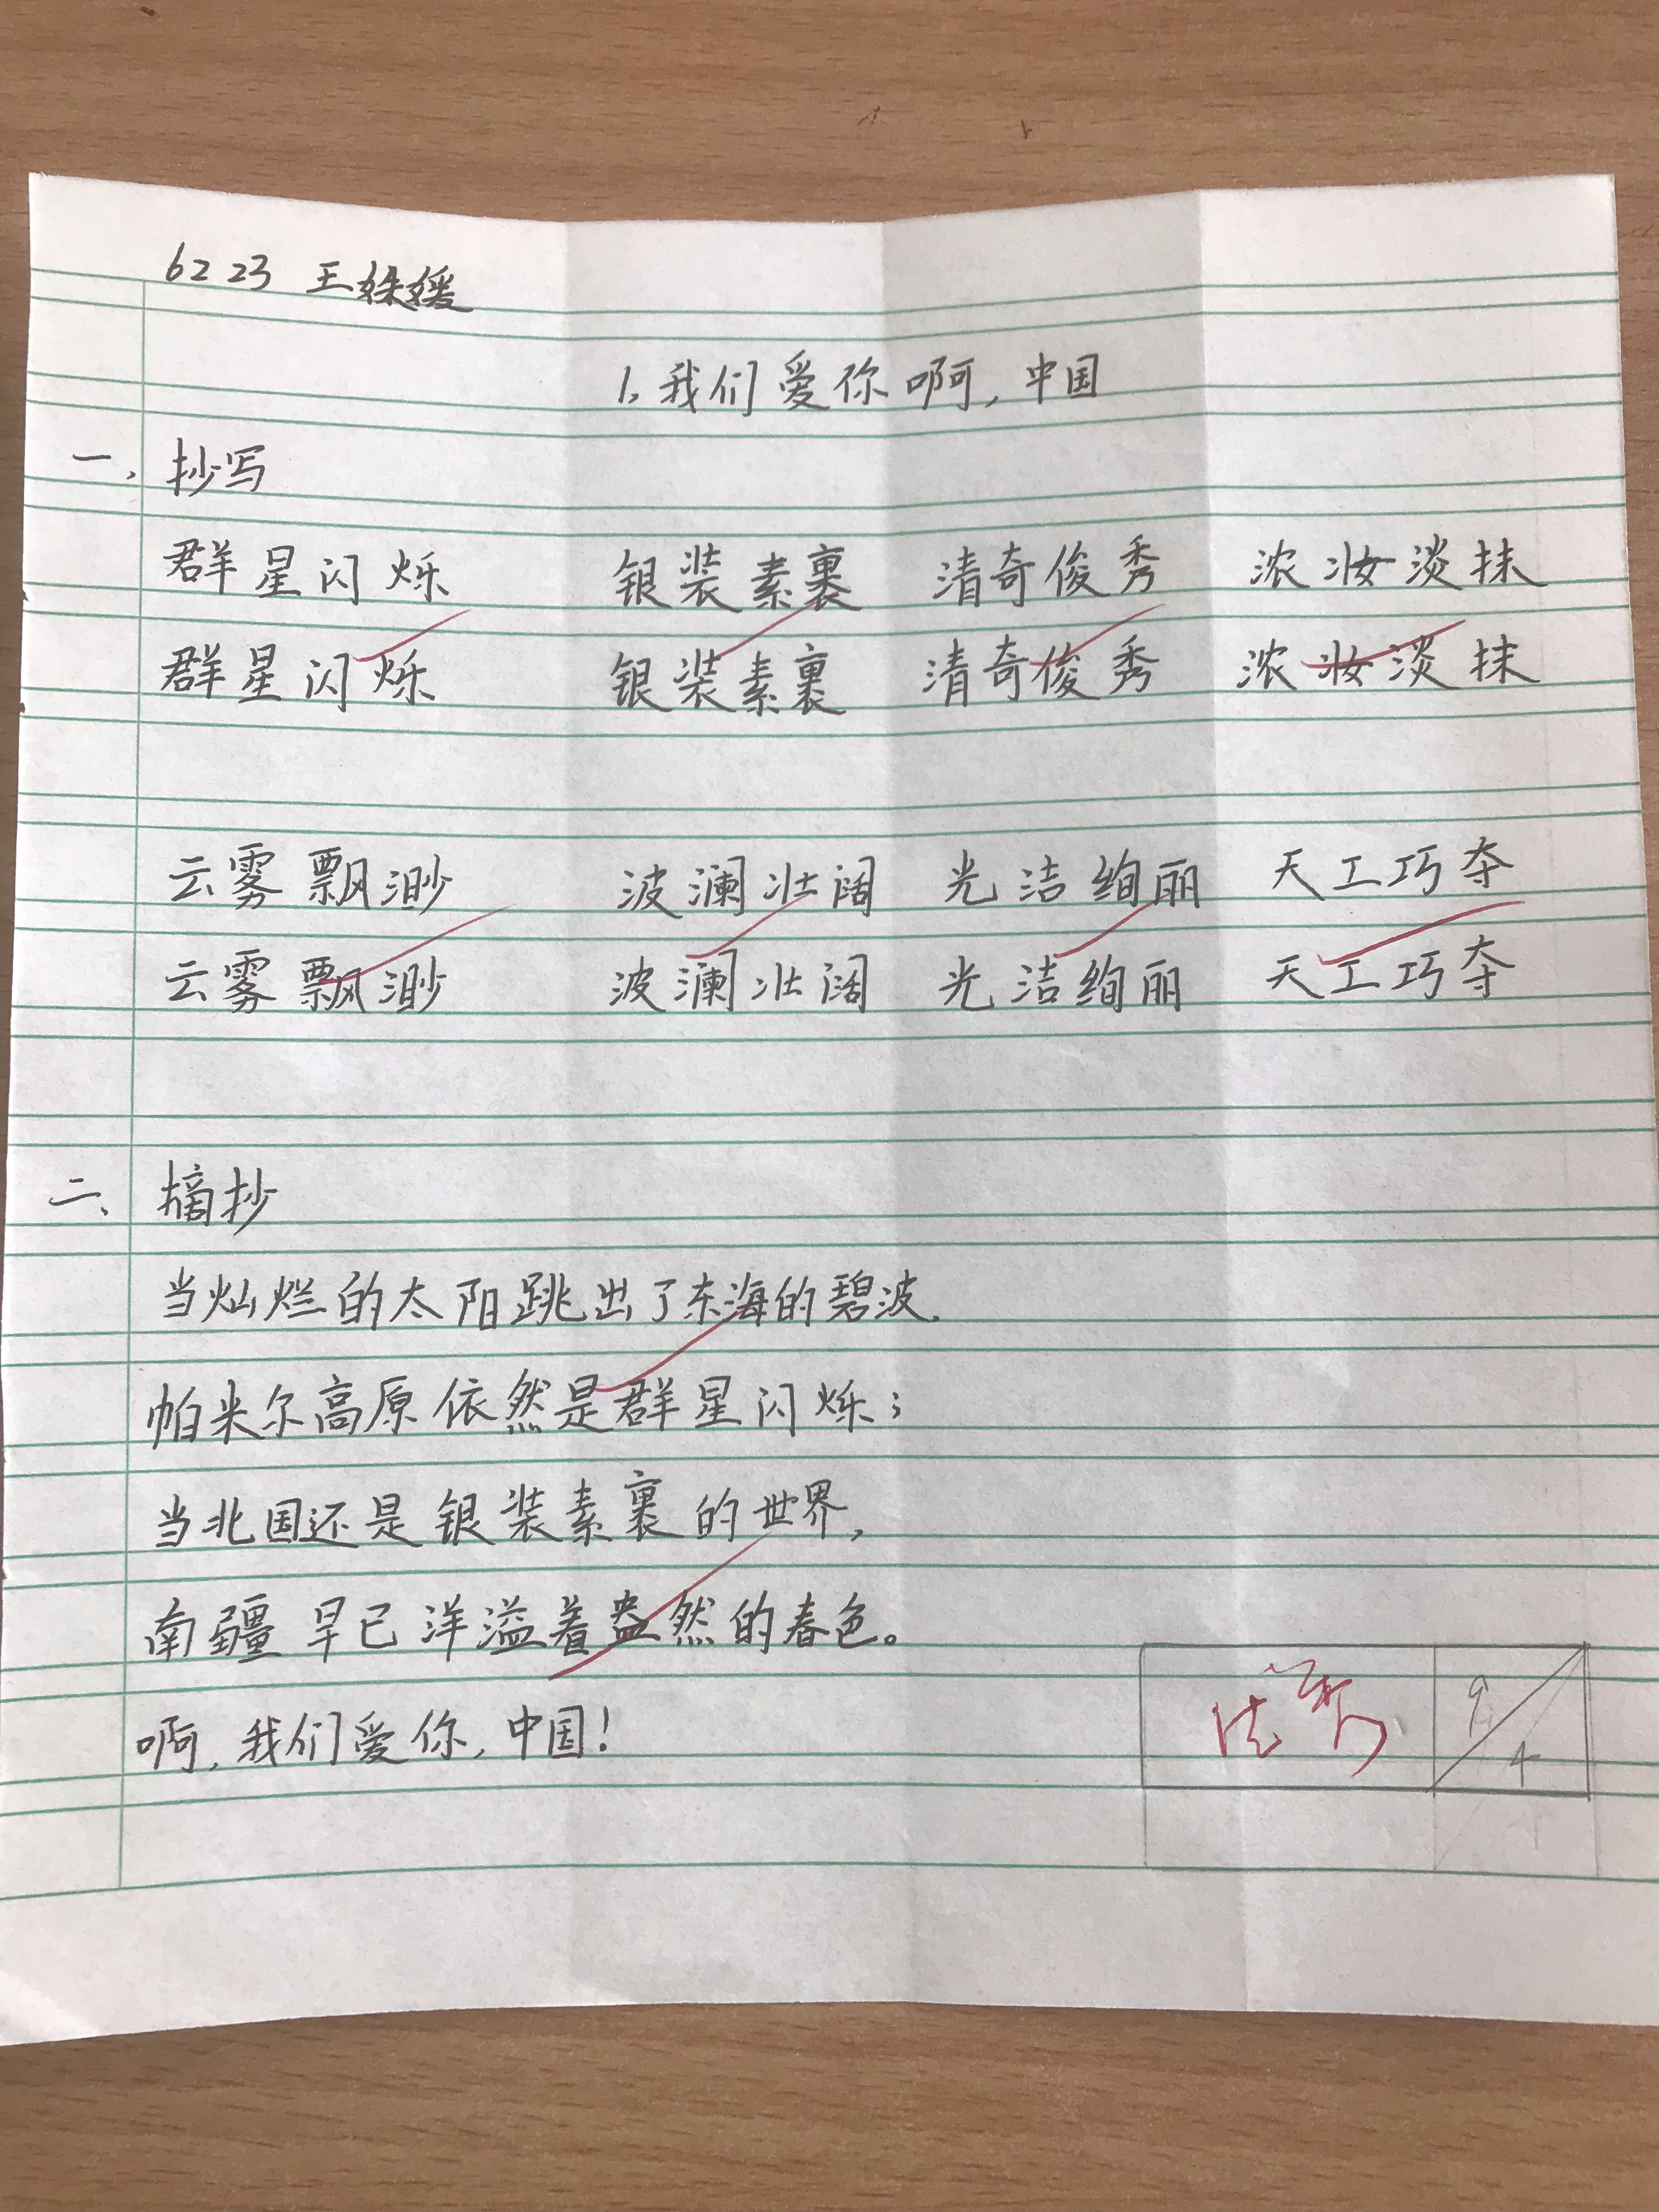 6223 王姝媛
1、我们爱你啊,中国
一、抄写
群星闪烁 银装素裹 清奇俊秀 浓妆淡抹
群星闪烁 银装素裹 清奇俊秀 浓妆淡抹
云雾飘渺 波澜壮阔 光洁绚丽 天工巧夺
云雾飘渺 波澜壮阔 光洁绚丽 天工巧夺
二、摘抄
当灿烂的太阳跳出了东海的碧波,
帕米尔高原依然是群星闪烁;
当北国还是银装素裹的世界,
南疆早已洋溢着盎然的春色。
啊,我们爱你,中国!
优秀 9/4